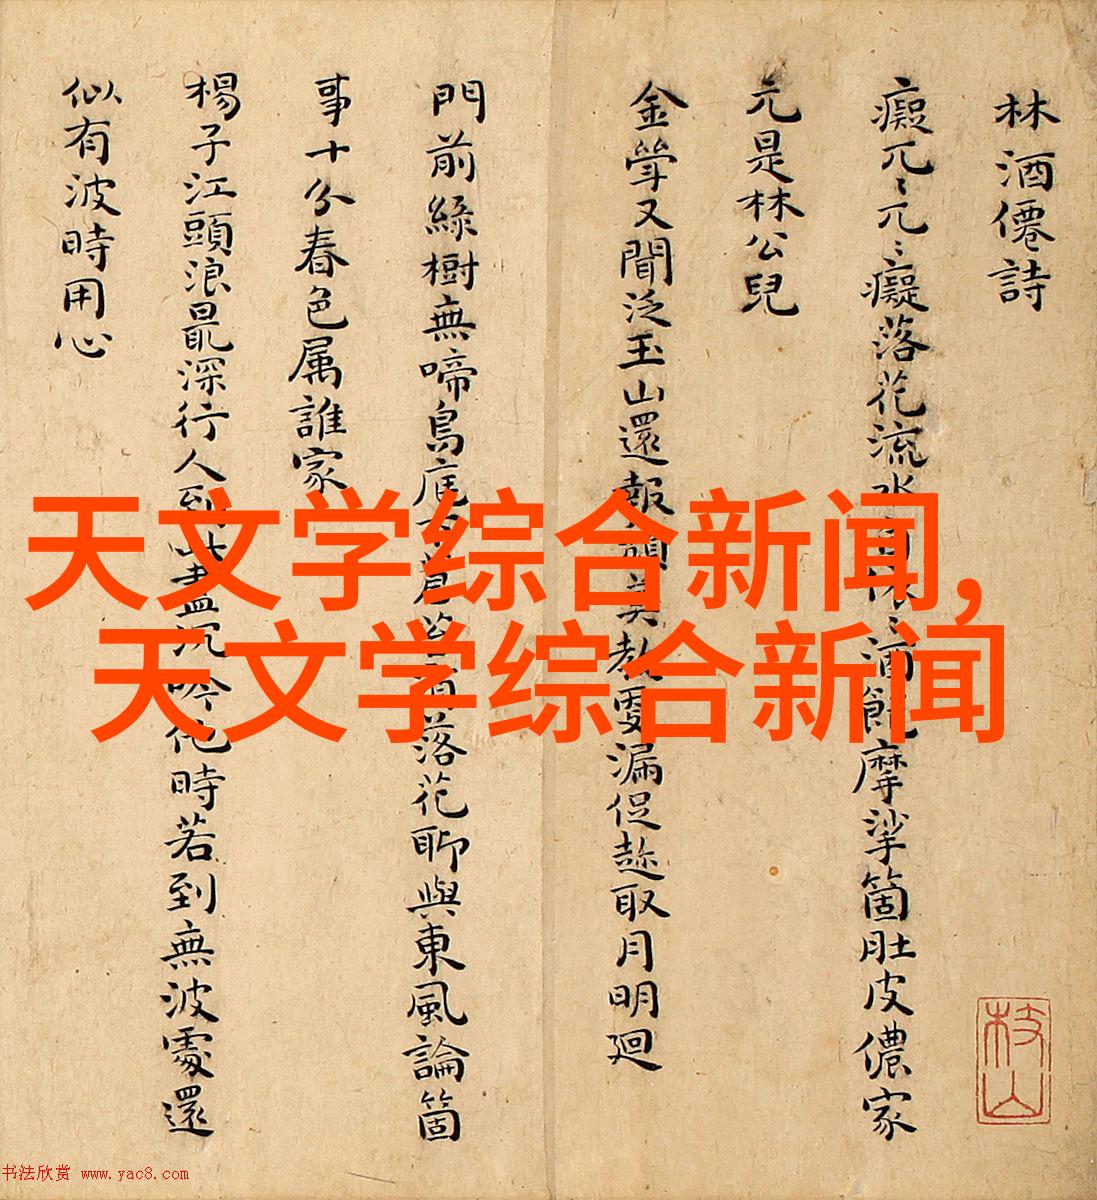 林酒僊詩
癡兀〻兀〻癡落花流水自
摩挲箇肚皮儂家
元是林公兒
金斝又聞泛玉山還報頽
漏促趂取月明廻
門前綠樹無啼鳥庭下
落花聊與東風論箇
事十分春色属誰家
楊子江頭浪最深行人到
時若到無波處還
似有波時用心
枝山
天文学综合新闻,
天文学综合新闻
书法欣赏 www.yac8.com